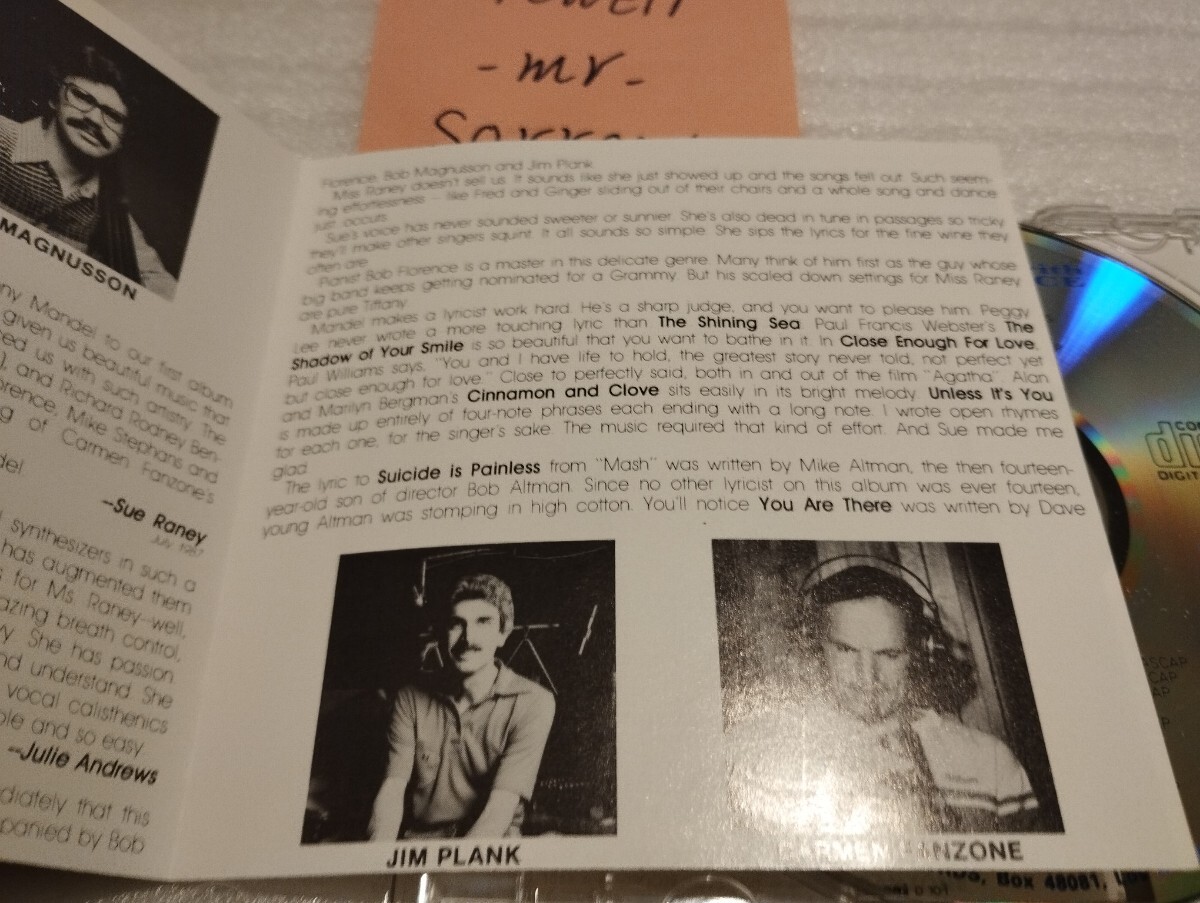 -mr-
MAGNUSSON
ny Mandel to our first album
given us beautiful music that
red us with such artistry. The
), and Richard Rodney Ben-
orence, Mike Stephans and
g of Carmen Fanzone's
del.
--Sue Raney
July 1987
synthesizers in such a
has augmented them
for Ms. Raney--well,
azing breath control,
She has passion
nd understand. She
vocal calisthenics
ple and so easy.
--Julie Andrews
diately that this
panied by Bob
Florence, Bob Magnusson and Jim Plank.
Miss Raney doesn't sell us. It sounds like she just showed up and the songs fell out. Such seem-
ing effortlessness – like Fred and Ginger sliding out of their chairs and a whole song and dance
just occurs.
Sue's voice has never sounded sweeter or sunnier. She's also dead in tune in passages so tricky
they'll make other singers squint. It all sounds so simple. She sips the lyrics for the fine wine they
often are.
Pianist Bob Florence is a master in this delicate genre. Many think of him first as the guy whose
big band keeps getting nominated for a Grammy. But his scaled down settings for Miss Raney
are pure Tiffany.
Mandel makes a lyricist work hard. He's a sharp judge, and you want to please him. Peggy
Lee never wrote a more touching lyric than The Shining Sea. Paul Francis Webster's The
Shadow of Your Smile is so beautiful that you want to bathe in it. In Close Enough For Love,
Paul Williams says, "You and I have life to hold, the greatest story never told, not perfect yet
but close enough for love." Close to perfectly said, both in and out of the film "Agatha". Alan
and Marilyn Bergman's Cinnamon and Clove sits easily in its bright melody. Unless It's You
is made up entirely of four-note phrases each ending with a long note. I wrote open rhymes
for each one, for the singer's sake. The music required that kind of effort. And Sue made me
glad.
The lyric to Suicide is Painless from "Mash" was written by Mike Altman, the then fourteen-
year-old son of director Bob Altman. Since no other lyricist on this album was ever fourteen,
young Altman was stomping in high cotton. You'll notice You Are There was written by Dave
JIM PLANK
CARMEN FANZONE
DIGIT
SCAP
CAP
AP
P
Box 48081,